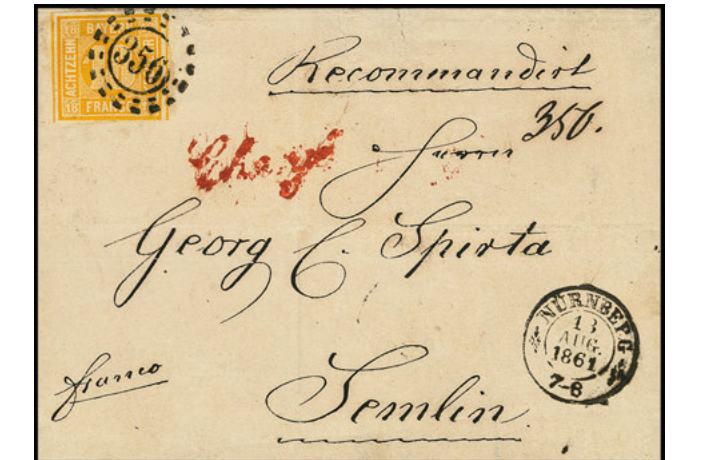 18
BAY
ACHTZEHN
18
FRAN
356
Recommandirt
356.
Chargé
Herrn
Georg C. Spirta
NÜRNBERG
13
AUG.
1861
7-8
franco
Semlin